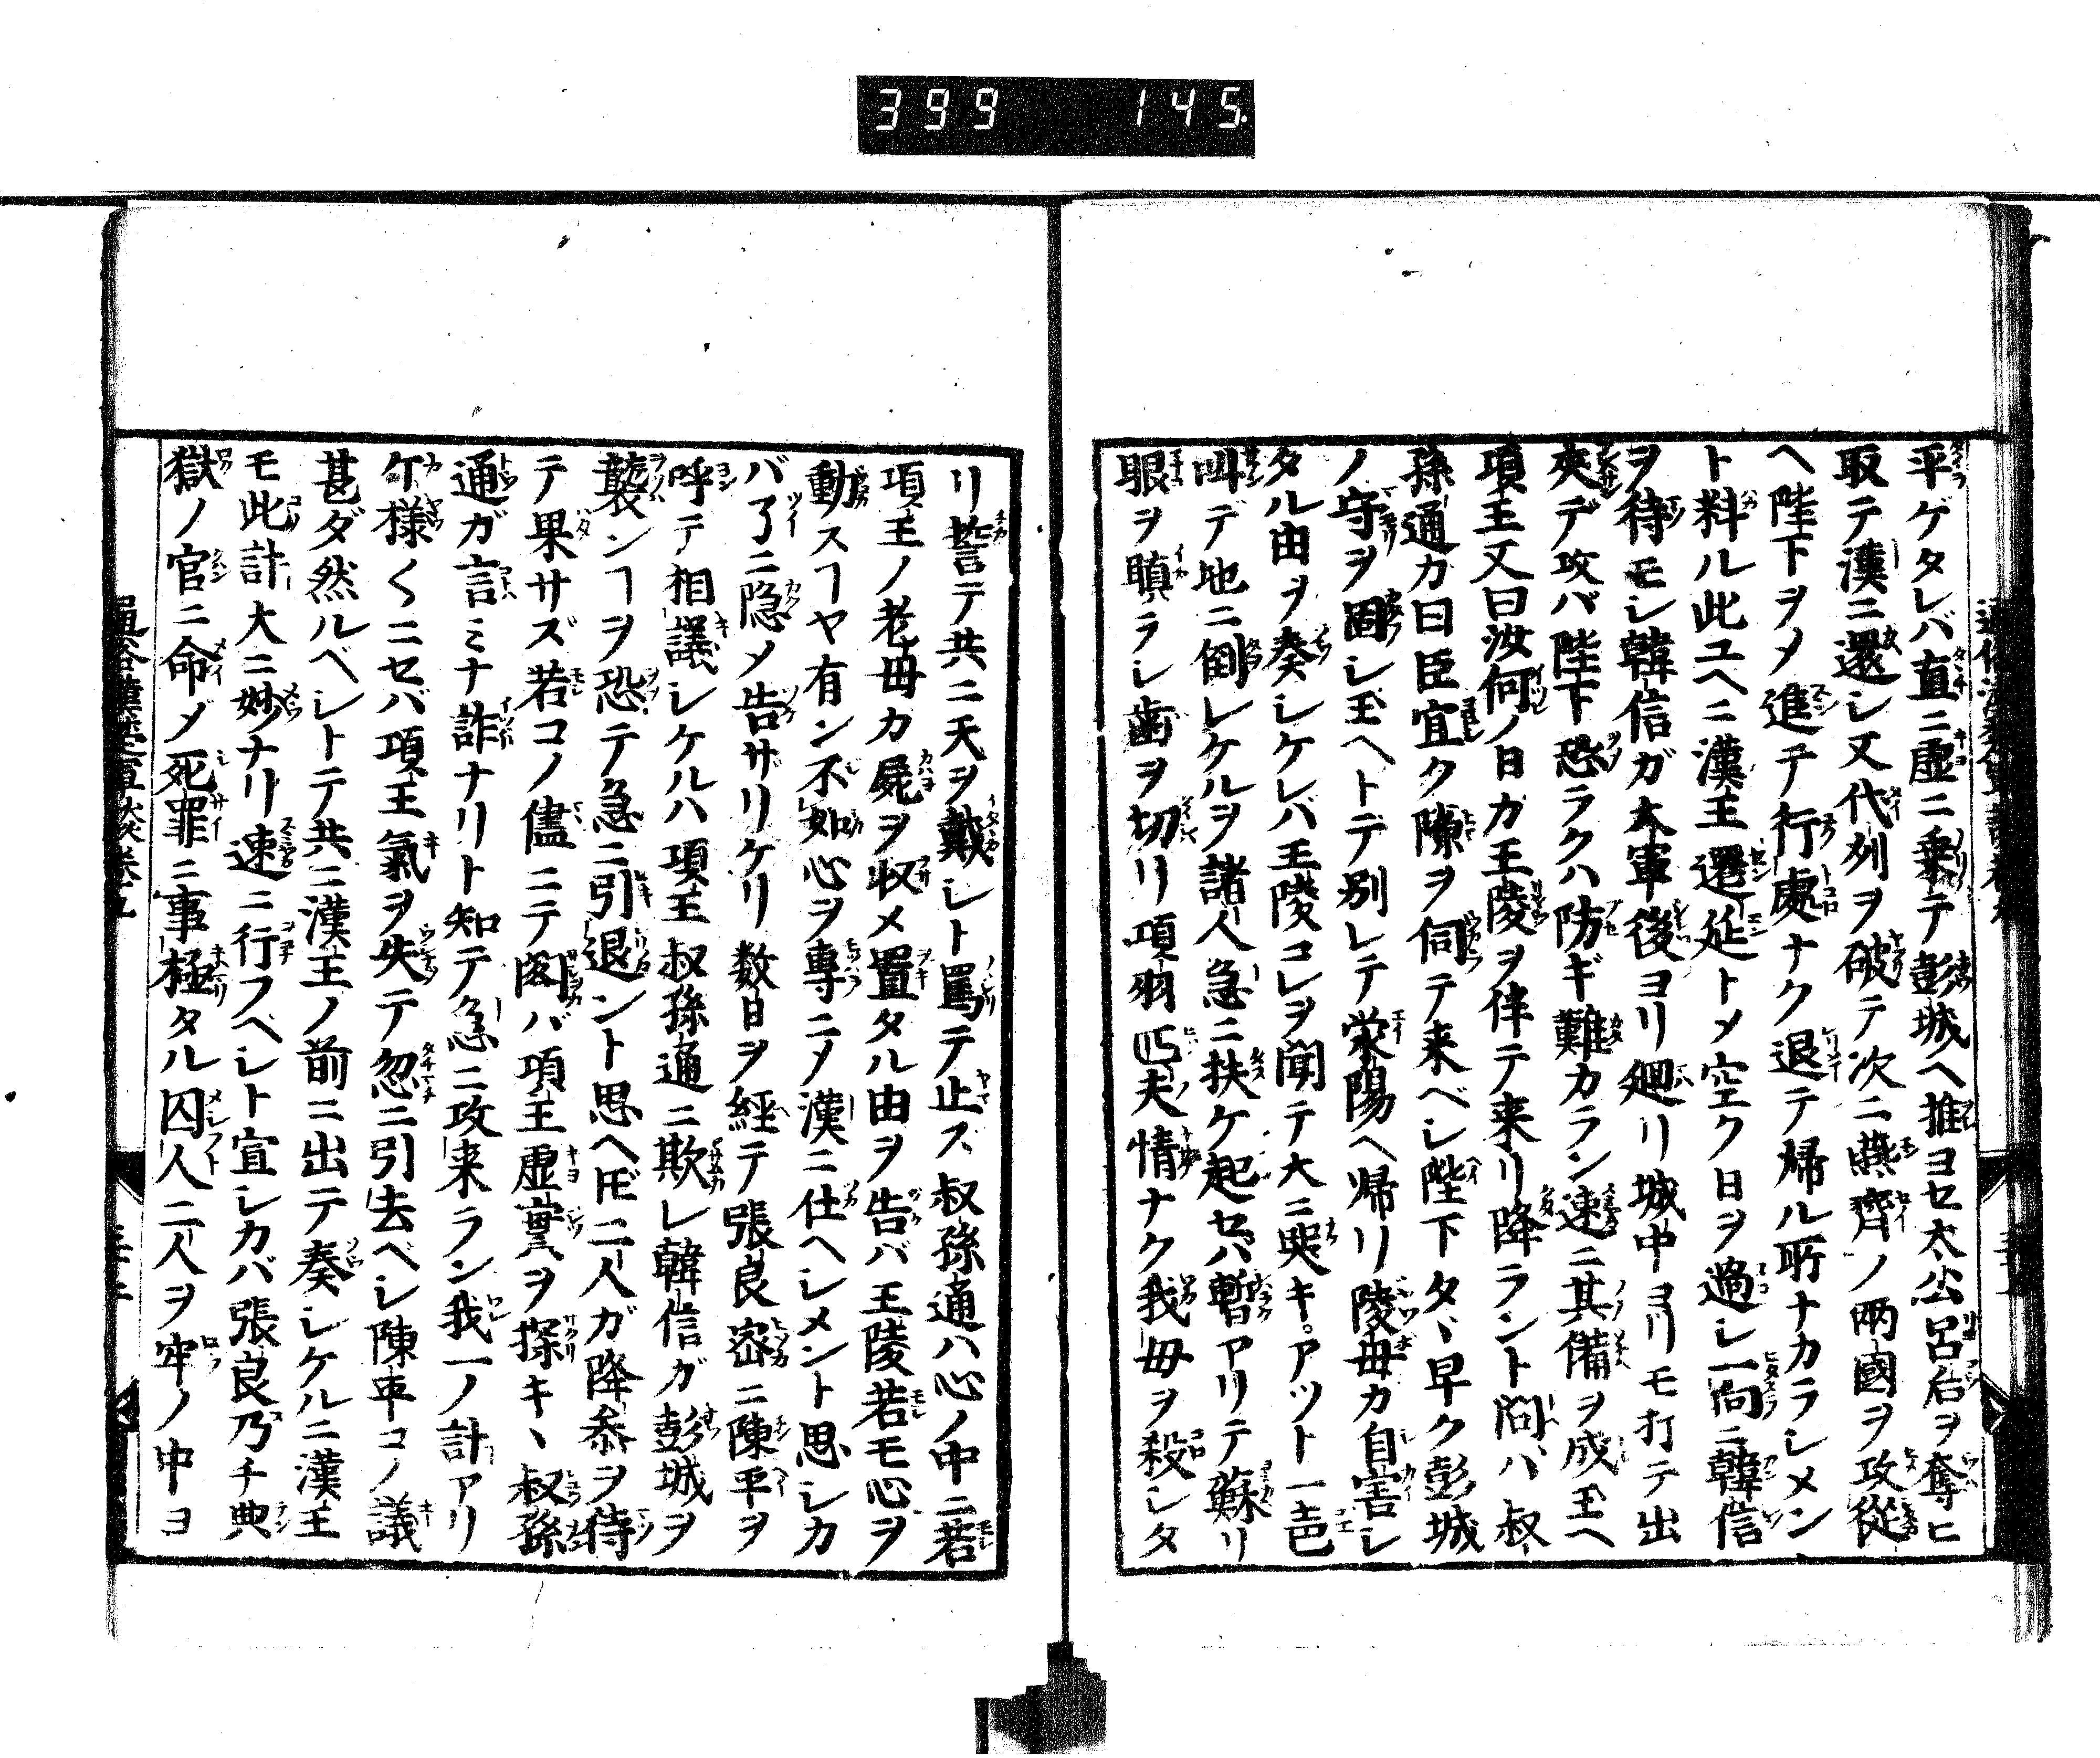 399 145.
平ゲタレバ直ニ虚ニ乗テ彭城ヘ推ヨセ太公呂后ヲ奪ヒ
取テ漢ニ還シ又代列ヲ破テ次ニ燕齊ノ兩國ヲ攻從
ヘ陛下ヲメ進テ行處ナク退テ帰ル所ナカラレメン
ト料ル此ユヘニ漢王遷延トメ空ク日ヲ過シ一向ニ韓信
ヲ待モシ韓信ガ大軍後ヨリ廻リ城中ヨリモ打テ出
夾デ攻バ陛下恐ラクハ防ギ難カラン速ニ其備ヲ成玉ヘ
項王又曰汝何ノ日カ王陵ヲ伴テ来リ降ラント問バ叔
孫通カ曰臣宜ク隙ヲ伺テ来ベシ陛下タヾ早ク彭城
ノ守ヲ固シ玉ヘトテ別レテ滎陽ヘ帰リ陵母カ自害シ
タル由ヲ奏シケレバ王陵コレヲ聞テ大ニ哭キ。アツト一声
叫デ地ニ倒レケルヲ諸人急ニ扶ケ起セバ暫アリテ蘇リ
眼ヲ瞋ラシ歯ヲ切リ項羽匹夫情ナク我母ヲ殺シタ
リ誓テ共ニ天ヲ戴レト罵テ止ス叔孫通ハ心ノ中ニ若
項王ノ老母カ屍ヲ收メ置タル由ヲ告バ王陵若モ心ヲ
動スヿヤ有ン不如心ヲ專ニメ漢ニ仕ヘレメント思レカ
バ了ニ隐メ告サリケリ数日ヲ経テ張良密ニ陳平ヲ
呼テ相議レケルハ項王叔孫通ニ欺レ韓信ガ彭城ヲ
襲ンヿヲ恐テ急ニ引退ント思ヘ𪜈二人ガ降参ヲ待
テ果サズ若コノ儘ニテ閣バ項王虚實ヲ探キヽ叔孫
通ガ言ミナ詐ナリト知テ急ニ攻来ラン我一ノ計アリ
ケ様〱ニセバ項王氣ヲ失テ忽ニ引去ベレ陳平コノ議
甚ダ然ルベレトテ共ニ漢王ノ前ニ出テ奏レケルニ漢王
モ此計大ニ妙ナリ速ニ行フヘレト宣レカバ張良乃チ典
獄ノ官ニ命メ死罪ニ事極タル囚人二人ヲ牢ノ中ヨ